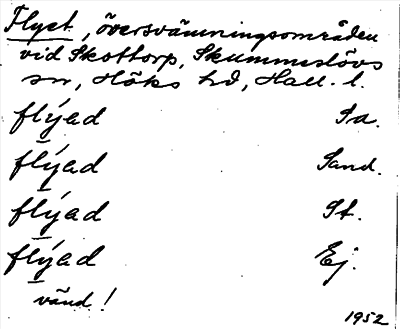 Flyet, översvämningsområden
vid Skottorp, Skummeslövs
sn, Höks hd, Hall. l.
flýəd Sa.
flýəd Sand.
flýəd St.
flýəd Ej.
vänd!
1952